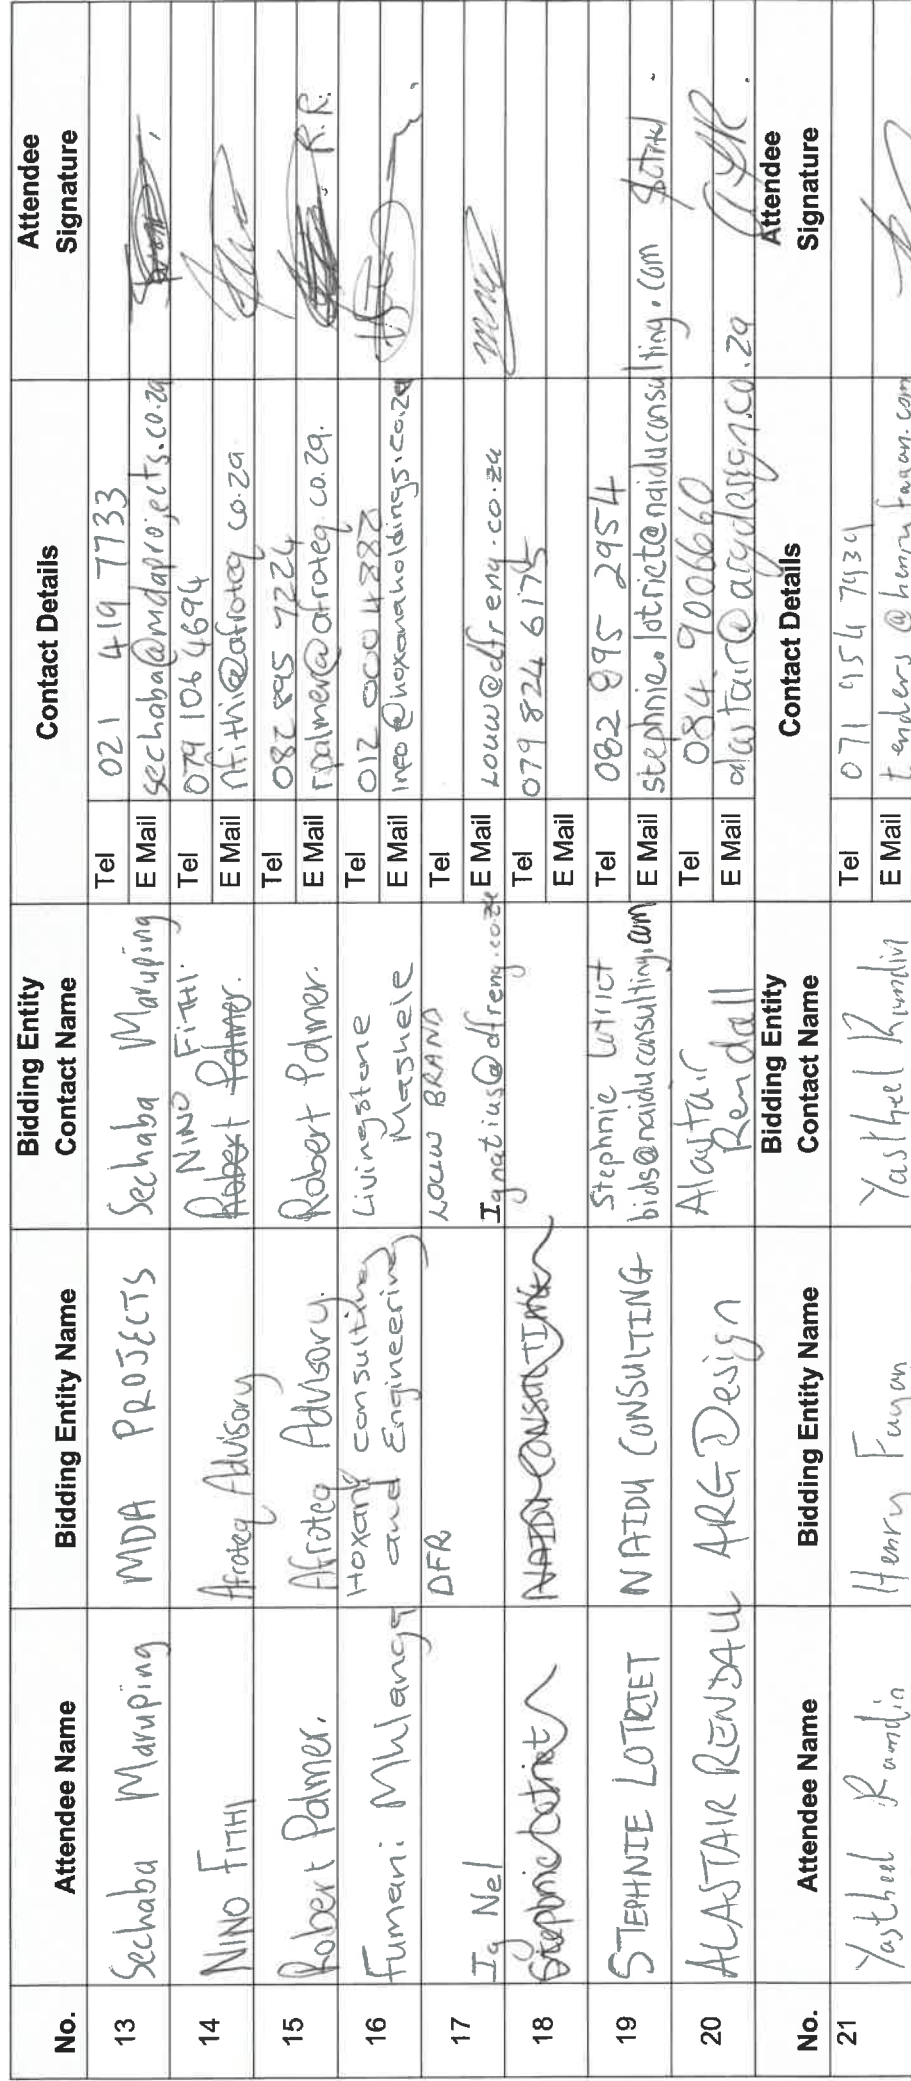 No. Attendee Name Bidding Entity Name Bidding Entity Contact Name Contact Details Attendee Signature
13 Sechaba Maruping MDA PROJECTS Sechaba Maruping Tel 021 419 7733
E Mail sechaba@mdaprojects.co.za
14 NINO FITHI Afroteq Advisory NINO FITHI. Robert Palmer. Tel 079 106 4694
E Mail nfithi@afroteq.co.za
15 Robert Palmer. Afroteq Advisory. Robert Palmer. Tel 082 895 7224
E Mail rpalmer@afroteq.co.za. R.R.
16 Fumani Mhlanga Hoxani consulting and Engineering Livingstone Mashele Tel 012 000 4882
E Mail info@hoxanaholdings.co.za
17 Ig Nel DFR LOUW BRAND Tel
Ignatius@dfreng.co.za E Mail Louw@dfreng.co.za
18 Stephnie Lotriet NAIDU CONSULTING Tel 079 824 6175
E Mail
19 STEPHNIE LOTRIET NAIDU CONSULTING Stephnie Lotriet Tel 082 895 2954
bids@naiduconsulting.com E Mail stephnie.lotriet@naiduconsulting.com
20 ALASTAIR RENDALL ARG Design Alastair Rendall Tel 084 9006660
E Mail alastair@argdesign.co.za
No. Attendee Name Bidding Entity Name Bidding Entity Contact Name Contact Details Attendee Signature
21 Yastheel Ramdin Henry Fagan Yastheel Ramdin Tel 071 954 7939
E Mail tenders@henryfagan.com